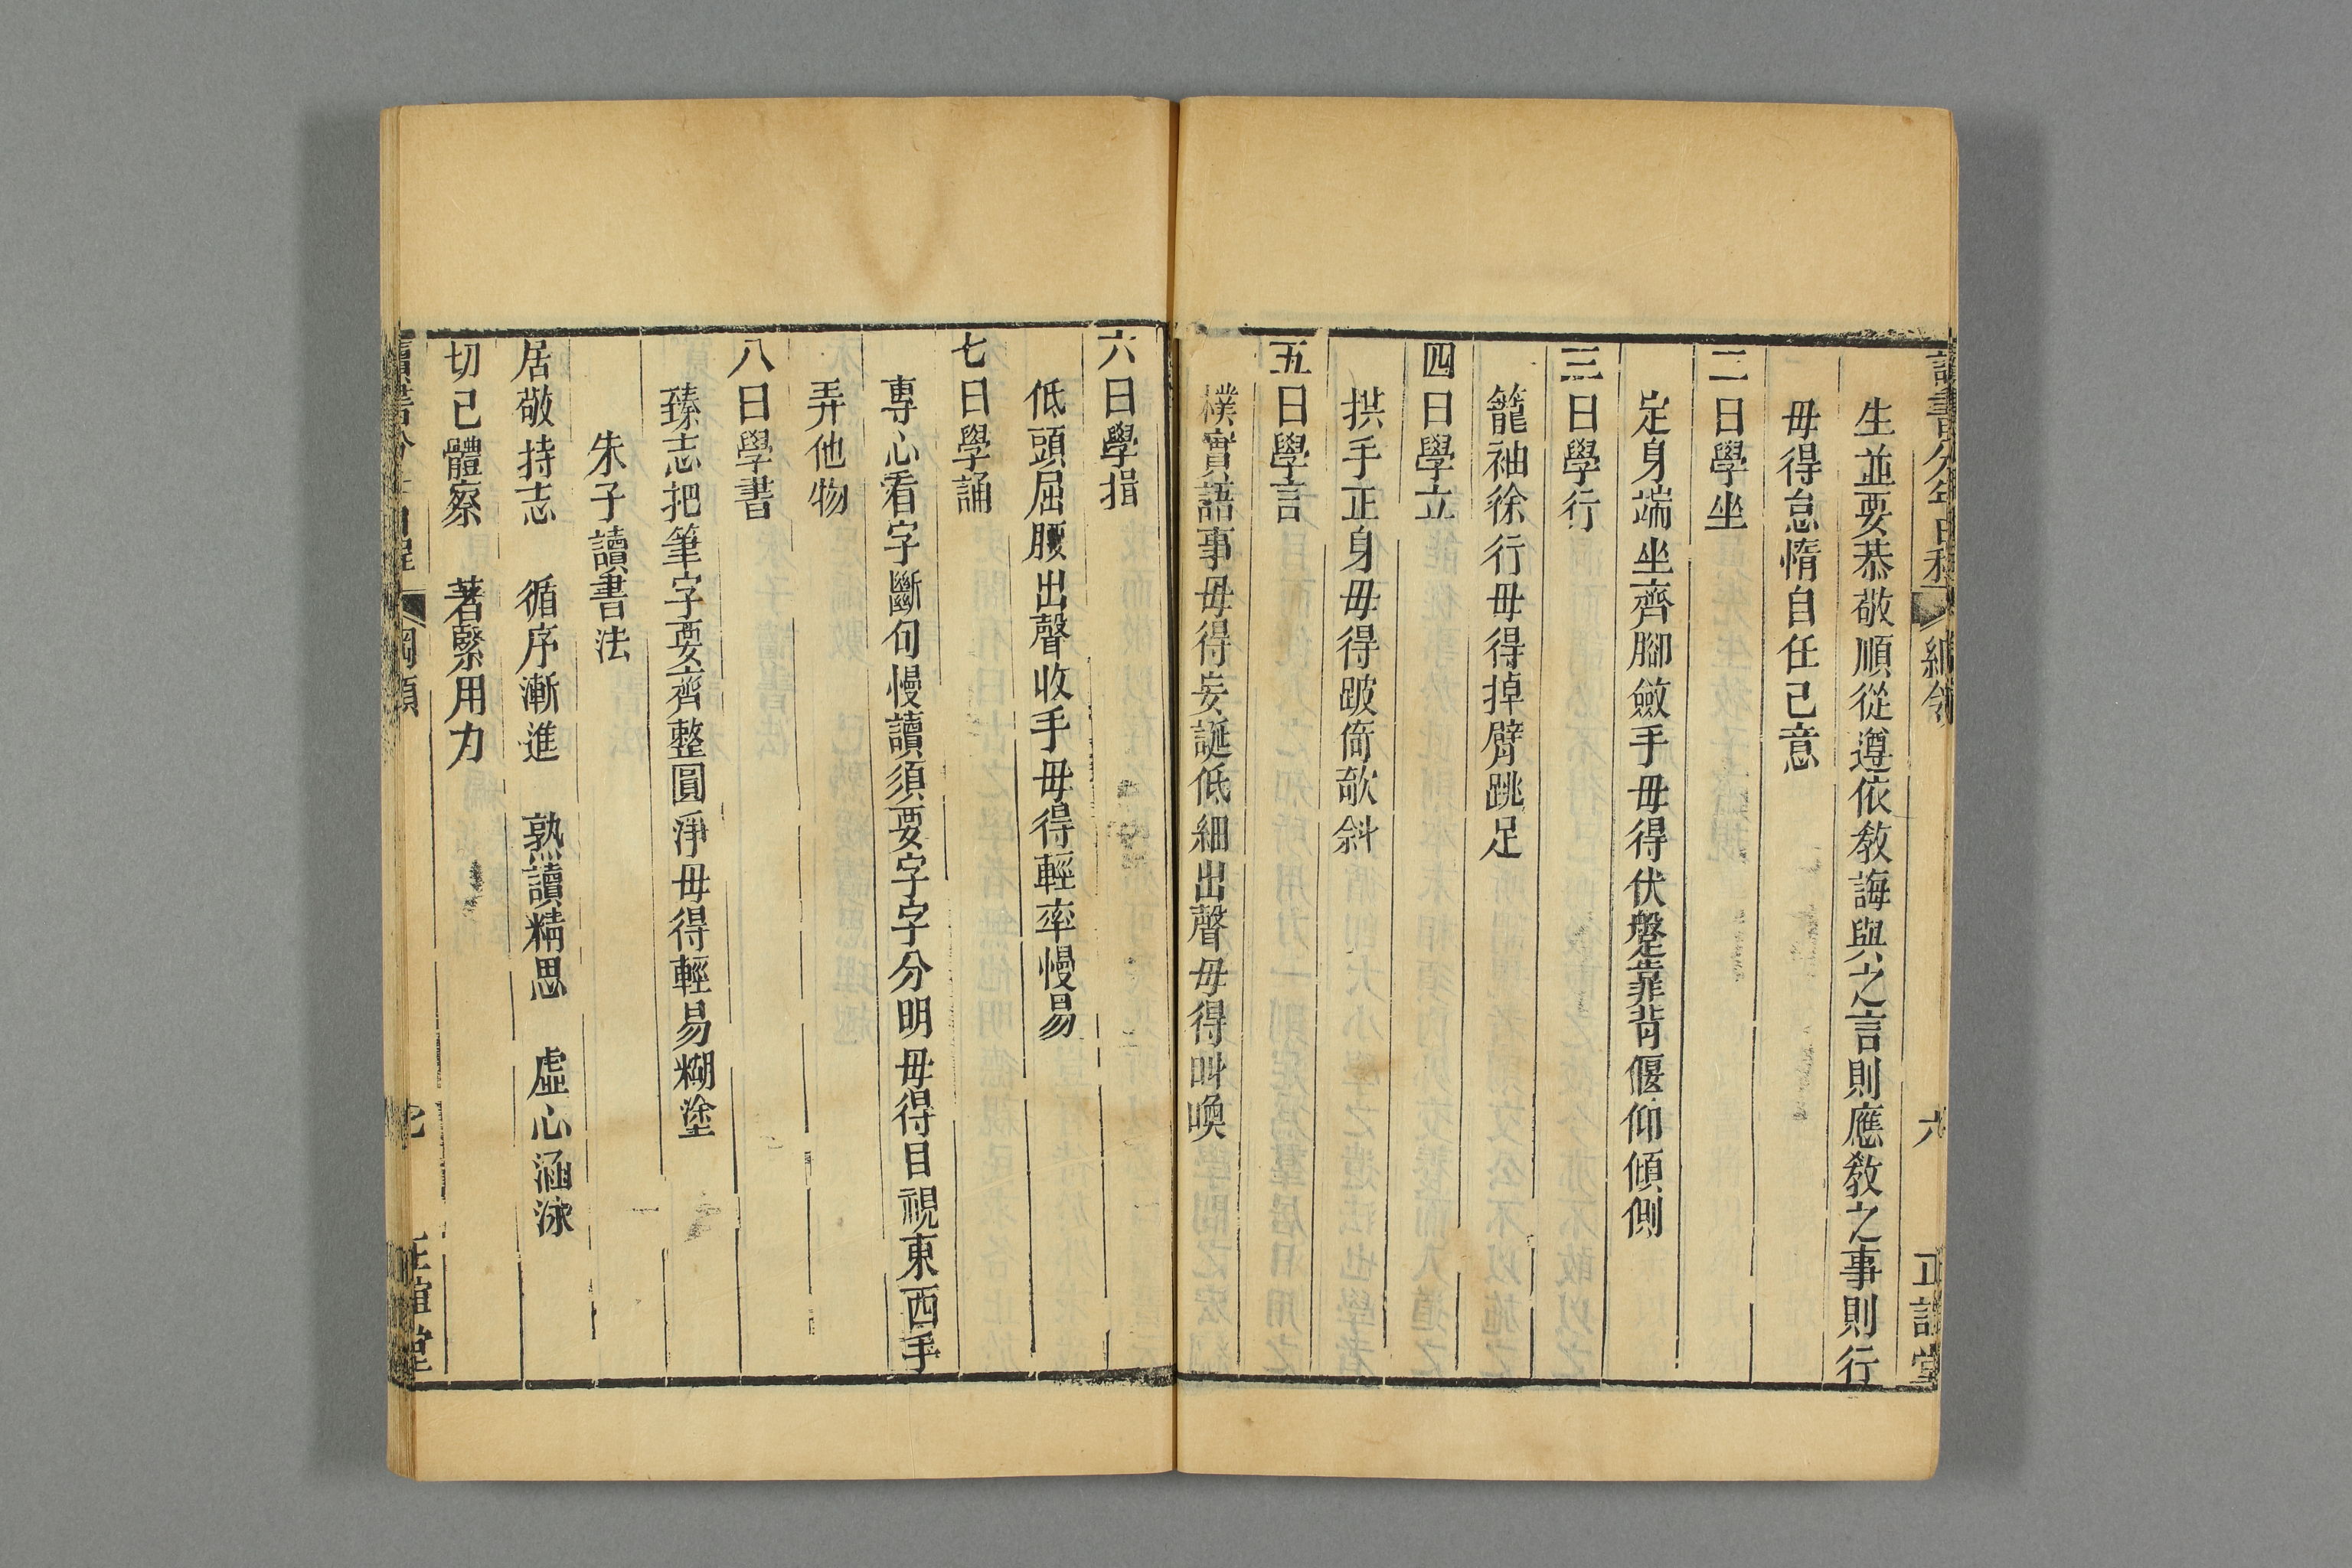 讀書分年日程 綱領 六 正誼堂
生並要恭敬順從遵依敎誨與之言則應敎之事則行
毋得怠惰自任己意
二曰學坐
定身端坐齊腳斂手毋得伏盤靠背偃仰傾側
三曰學行
籠袖徐行毋得掉臂跳足
四曰學立
拱手正身毋得跛倚欹斜
五曰學言
樸實語事毋得妄誕低細出聲毋得叫喚
六曰學揖
低頭屈腰出聲收手毋得輕率慢易
七曰學誦
專心看字斷句慢讀須要字字分明毋得目視東西手
弄他物
八曰學書
臻志把筆字要齊整圓淨毋得輕易糊塗
朱子讀書法
居敬持志　循序漸進　熟讀精思　虛心涵泳
切己體察　著緊用力
讀書分年日程 綱領 七 正誼堂